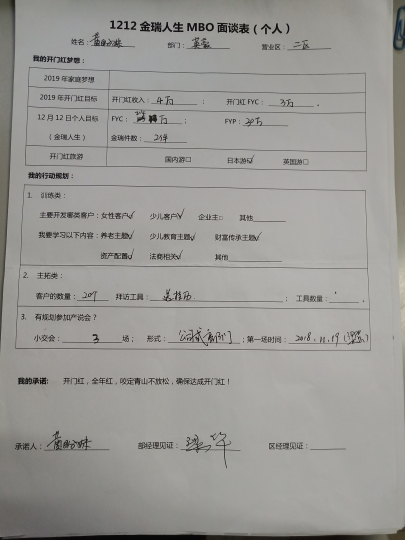 1212金瑞人生MBO面谈表（个人）
姓名： 部门： 营业区：二区
我的开门红梦想：
2019年家庭梦想
2019年开门红目标 开门红收入：4万； 开门红FYC：3万。
12月12日个人目标 FYC：万； FYP：30万
（金瑞人生） 金瑞件数：
开门红旅游 国内游□ 日本游☑ 英国游□
我的行动规划：
1. 训练类：
主要开发哪类客户：女性客户☑ 少儿客户☑ 企业主□ 其他
我要学习以下内容：养老主题☑ 少儿教育主题☑ 财富传承主题☑
资产配置☑ 法商相关☑ 其他
2. 主拓类：
客户的数量：207 拜访工具：送挂历； 工具数量：。
3. 有规划参加产说会？
小交会：3场； 形式：公司； 第一场时间：2018.11.19
我的承诺： 开门红，全年红，咬定青山不放松，确保达成开门红！
承诺人： 部经理见证： 区经理见证：